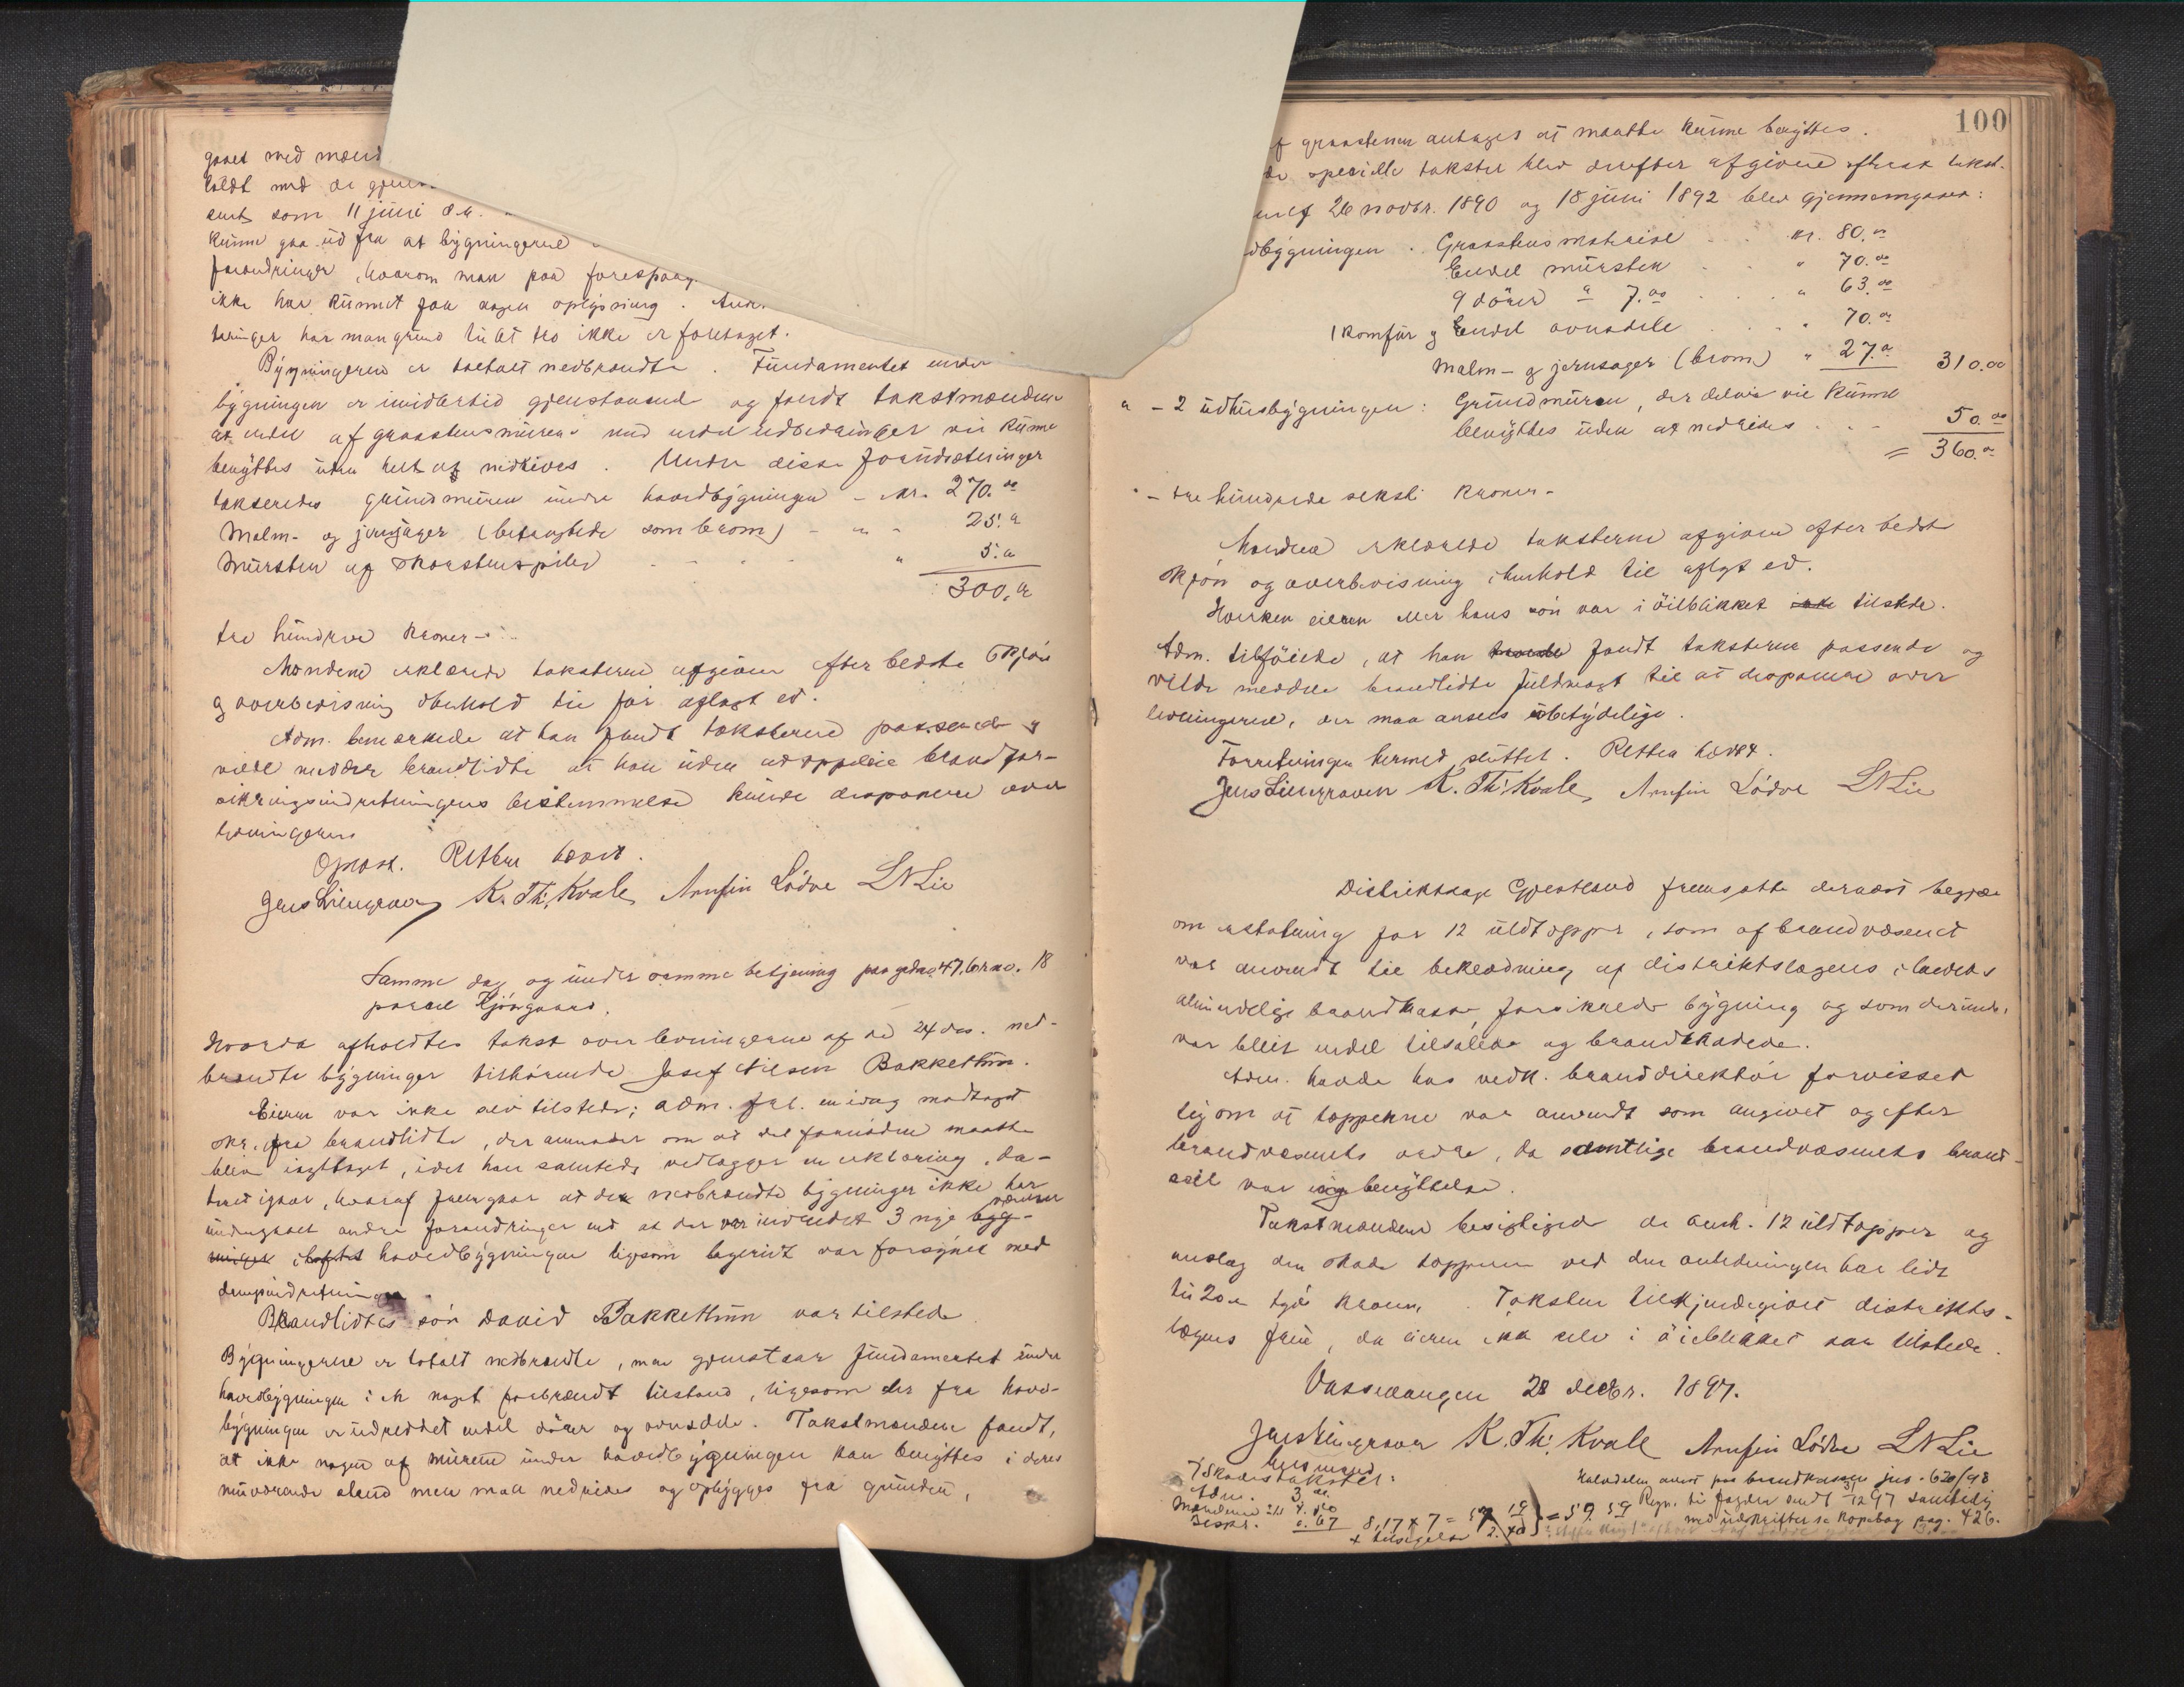 gaaet med
holdt med de
som 11 juni d.a.
kunne gaa ud fra at bygningerne
forandringer, hvorom man paa forespørg
ikke har kunnet faa nogen oplysning.
har man grund til at tro ikke er foretaget.
Bygningerne er totalt nedbrændte. Fundamentet under
bygningen er imidlertid gjenstaaende og fandt takstmændene
at endel af graastensmuren med endel udbedringer vil kunne
benyttes uden helt at nedrives. Under disse forudsætninger
takseredes grundmuren under hovedbygningen - kr. 270.00
Malm- og jernsager (betragtede som brom) - " - 25. "
Mursten af skorstenspiber " 5. "
300. "
tre hundrede kroner -
Mændene erklærede taksterne afgivne efter bedste skjøn
og overbevisning i henhold til før aflagt ed.
Adm. bemærkede at han fandt taksterne passende og
vilde meddele brandlidte at han uden at oppebie brandfor-
sikringsindretningens bestemmelse kunde disponere over
levningerne.
Oplæst. Retten hævet.
Jens Liengraven K. Th. Kvale Arnfin Lødve L N Lie
Samme dag og under samme betjening paa gaards no. 47, brno. 18
parcel
Hvorda afholdtes takst over levningerne af de 24 ds. ned-
brændte bygninger tilhørende Josef Nilsen Bakkethun.
Eieren var ikke selv tilstede; adm. har en idag modtaget
skr. fra brandlidte, der anmoder om at det fornødne maatte
blive iagttaget, idet han samtidig vedlægger en erklæring, da-
teret igaar, hvoraf fremgaar at de nedbrændte bygninger ikke har
undergaaet andre forandringer end at der var indredet 3 nye
værelser
i hovedbygningen ligesom var forsynet med
dampindretninger
Brandlidtes søn David Bakkethun var tilstede.
Bygningerne er totalt nedbrændte, men gjenstaar fundamentet under
hovedbygningen i et noget forbrændt tilstand, ligesom der fra hoved-
bygningen er udreddet endel dører og ovnsdele. Takstmændene fandt,
at ikke noget af murene under hovedbygningen kan benyttes i deres
nuværende stand men maa nedrives og opbygges fra grunden,
100
af graastenen antages at maatte kunne benyttes.
specielle takster blev derefter afgivne efterat takst.
26 novbr. 1890 og 18 juni 1892 blev gjennemgaaet:
dbygningen . Graastensmateriale . . kr. 80."
Endel mursten . . " 70.00
9 dører a 7.00 . . . " 63.00
1 komfur og Endel ovnsdele . . . 70."
Malm- og jernsager (brom) " 27." 310.00
" - 2 udhusbygningen : Grundmuren, der delvis vil kunne
benyttes uden at nedrives . . - 50.00
= 360."
- tre hundrede seksti kroner -
Mændene erklærede taksterne afgivne efter bedste
skjøn og overbevisning i henhold til aflagt ed.
Hverken eieren eller hans søn var i øieblikket tilstede.
Adm. tilføiede, at han fandt taksterne passende og
vilde meddele brandlidte fuldmagt til at disponere over
levningerne, der maa ansees ubetydelige.
Forretningen hermed sluttet. Retten hævet.
Jens Liengraven K. Th. Kvale, Arnfin Lødve L N Lie
Distriktslæge Gjestland fremsatte dernæst begjæ
om erstatning for 12 uldtæpper, som af brandvæsenet
var anvendt til beklædning af distriktslægens i landets
almindelige brandkasse forsikrede bygning og som derunder
var blevet endel tilsølede og brandskadede.
Adm. havde hos vedk. branddirektør forvisset
sig om at tæpperne var anvendt som angivet og efter
brandvæsenets ordre, da samtlige brandvæsenets brand-
seil var i benyttelse.
Takstmændene besigtigede de anh. 12 uldtæpper og
anslog den skade tæpperne ved den anledningen har lidt
til 20." tyve kroner. Taksten tilkjendegivet distrikts-
lægens frue, da eieren ikke selv i øieblikket var tilstede.
Vossevangen 28 decbr. 1897.
Jens Liengraven K. Th. Kvale Arnfin Lødve L N Lie
7 Skadestakster:
Adm. 3
Mændene
0.67 8,17 x 7 = = 59.59
+ tilsigelse
Halvdelen anvist paa brandkassen jno. 620/98
Regn. til fogden sendt 31/12 97 samtidig
med udskrifter se kopibog pag. 426.